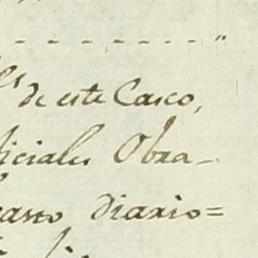 de este Casco,
ficiales Obra-
gasto Diario=